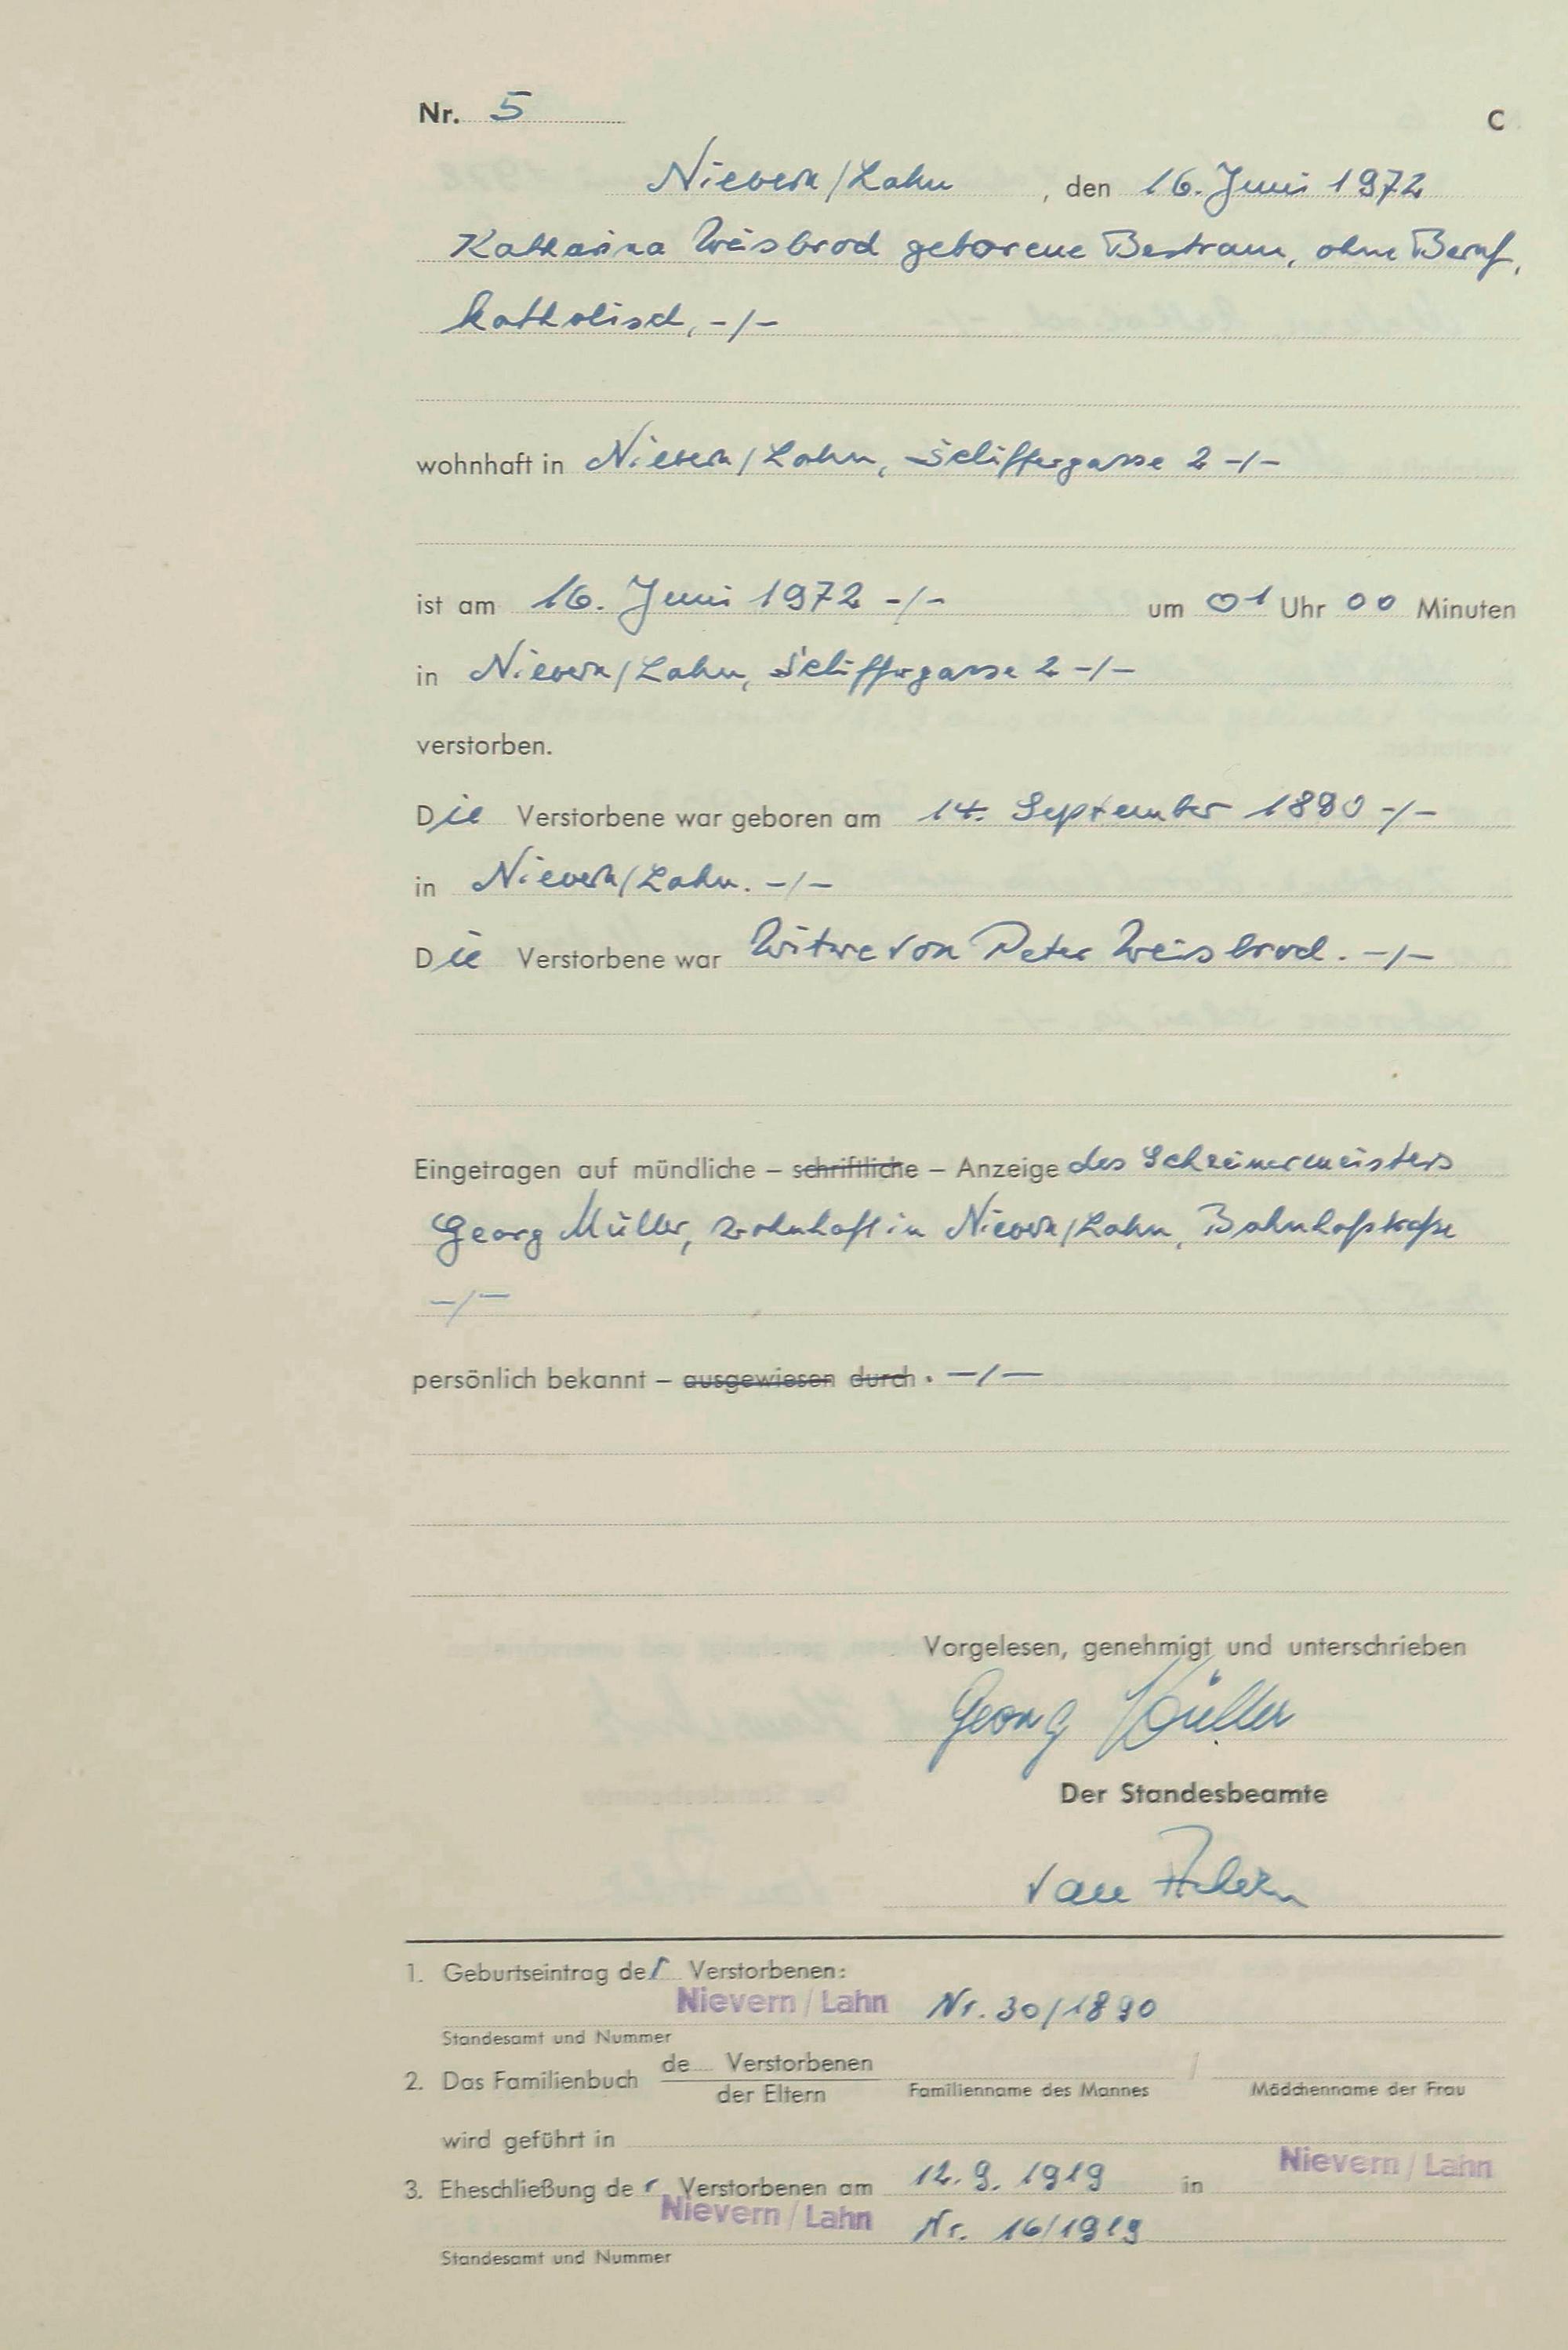 Nr. 5 C
Nievern/Lahn, den 16. Juni 1972
Katharina Weisbrod geborene Bertram, ohne Beruf,
katholisch, -/-
wohnhaft in Nievern/Lahn, Schiffergasse 2 -/-
ist am 16. Juni 1972 -/- um 01 Uhr 00 Minuten
in Nievern/Lahn, Schiffergasse 2 -/-
verstorben.
Die Verstorbene war geboren am 14. September 1890 -/-
in Nievern/Lahn. -/-
Die Verstorbene war Witwe von Peter Weisbrod. -/-
Eingetragen auf mündliche – schriftliche – Anzeige des Schreinermeisters
Georg Müller, wohnhaft in Nievern/Lahn, Bahnhofstraße
-/-
persönlich bekannt – ausgewiesen durch . -/-
Vorgelesen, genehmigt und unterschrieben
Georg Müller
Der Standesbeamte
van
1. Geburtseintrag der Verstorbenen:
Nievern / Lahn Nr. 30/1890
Standesamt und Nummer
de Verstorbenen
2. Das Familienbuch /
der Eltern Familienname des Mannes Mädchenname der Frau
wird geführt in
3. Eheschließung der Verstorbenen am 12.9.1919 in Nievern / Lahn
Nievern / Lahn Nr. 16/1919
Standesamt und Nummer